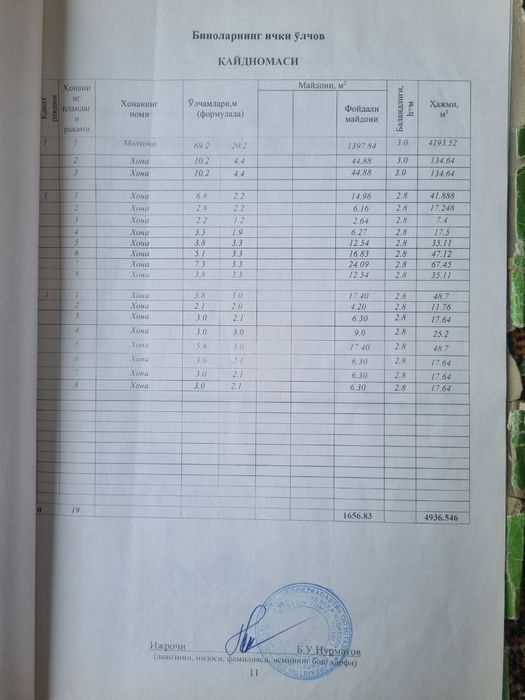 Биноларнинг ички ўлчов
ҚАЙДНОМАСИ
Қават рақами Хонани нг пландаг и рақами Хонанинг номи Ўлчамлари,м (формулала) Майдони, м² Фойдали майдони Баландлиги, h=м Ҳажми, м³
1 1 Молхона 69.2 20.2 1397.84 3.0 4193.52
2 Хона 10.2 4.4 44.88 3.0 134.64
3 Хона 10.2 4.4 44.88 3.0 134.64
1 1 Хона 6.8 2.2 14.96 2.8 41.888
2 Хона 2.8 2.2 6.16 2.8 17.248
3 Хона 2.2 1.2 2.64 2.8 7.4
4 Хона 3.3 1.9 6.27 2.8 17.5
5 Хона 3.8 3.3 12.54 2.8 35.11
6 Хона 5.1 3.3 16.83 2.8 47.12
7 Хона 7.3 3.3 24.09 2.8 67.45
8 Хона 3.8 3.3 12.54 2.8 35.11
1 1 Хона 5.8 3.0 17.40 2.8 48.7
2 Хона 2.1 2.0 4.20 2.8 11.76
3 Хона 3.0 2.1 6.30 2.8 17.64
4 Хона 3.0 3.0 9.0 2.8 25.2
5 Хона 5.8 3.0 17.40 2.8 48.7
6 Хона 3.0 2.1 6.30 2.8 17.64
7 Хона 3.0 2.1 6.30 2.8 17.64
8 Хона 3.0 2.1 6.30 2.8 17.64
и 19 1656.83 4936.546
Ижрочи Б.У.Нурматов
(лавозими, имзоси, фамилияси, исмининг бош ҳарфи)
11